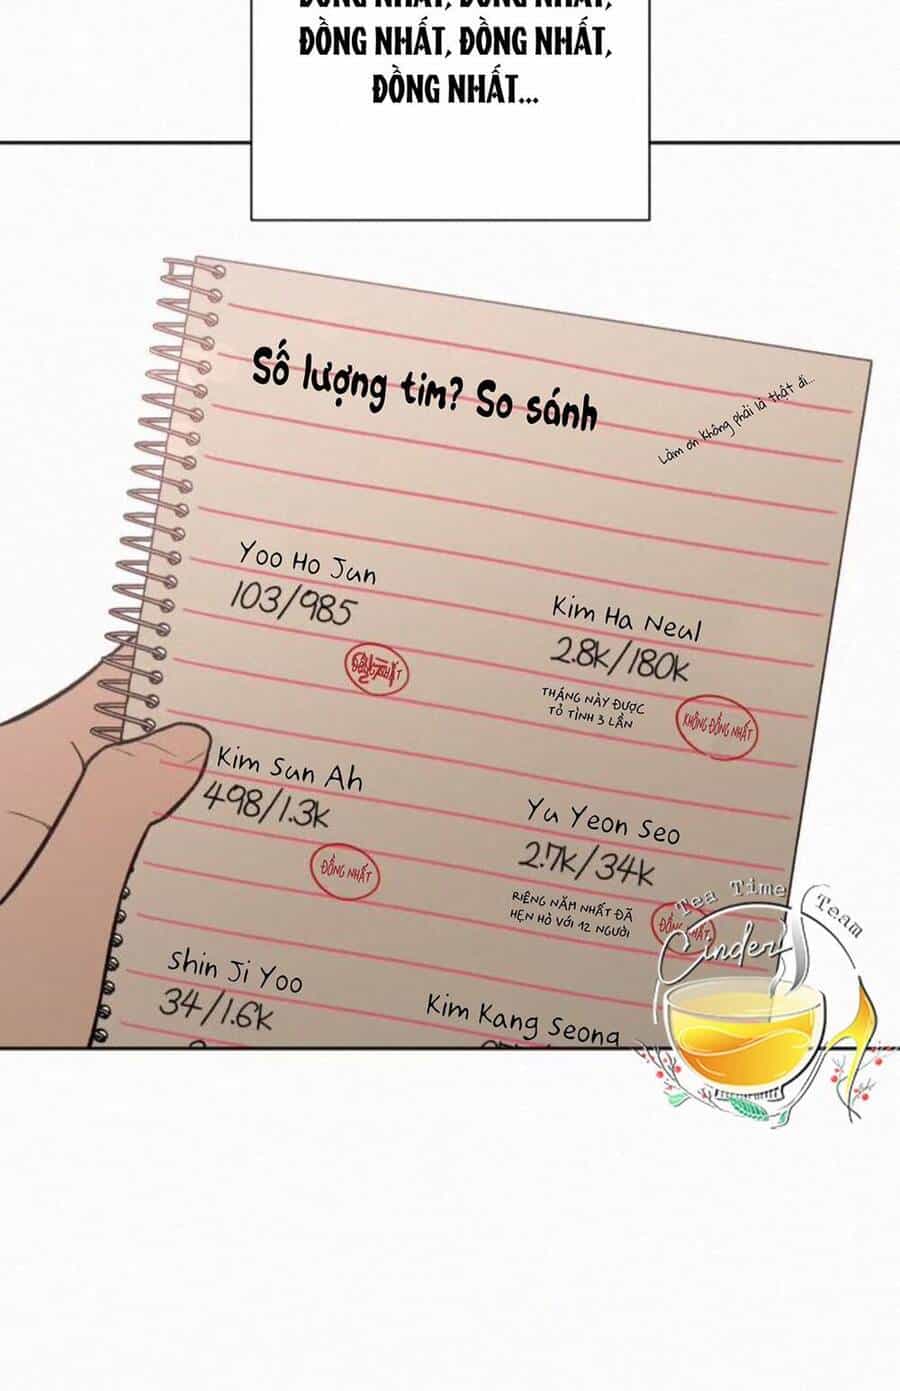 ĐỒNG NHẤT, ĐỒNG NHẤT,
ĐỒNG NHẤT, ĐỒNG NHẤT,
ĐỒNG NHẤT...
Số lượng tim? So sánh
Làm ơn không phải là thật đi...
Yoo Ho Jun
103/985
Kim Ha Neul
2.8K/180K
THÁNG NÀY ĐƯỢC
TỎ TÌNH 3 LẦN
KHÔNG ĐỒNG NHẤT
Kim Sun Ah
498/1.3K
ĐỒNG NHẤT
Yu Yeon Seo
2.7K/34K
RIÊNG NĂM NHẤT ĐÃ
HẸN HÒ VỚI 12 NGƯỜI
ĐỒNG NHẤT
Shin Ji Yoo
34/1.6K
Kim Kang Seong
Tea Time Team
Cinder